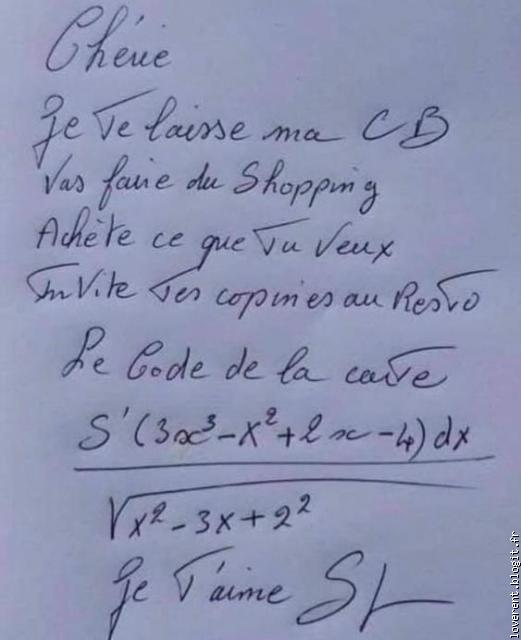 Chérie
Je Te laisse ma CB
Vas faire du Shopping
Achète ce que Tu Veux
InVite Tes copines au ResTo
Le Code de la carte
S'(3x³-x²+2x-4)dx
√x²-3x+2²
Je T'aime
overent.blogit.fr